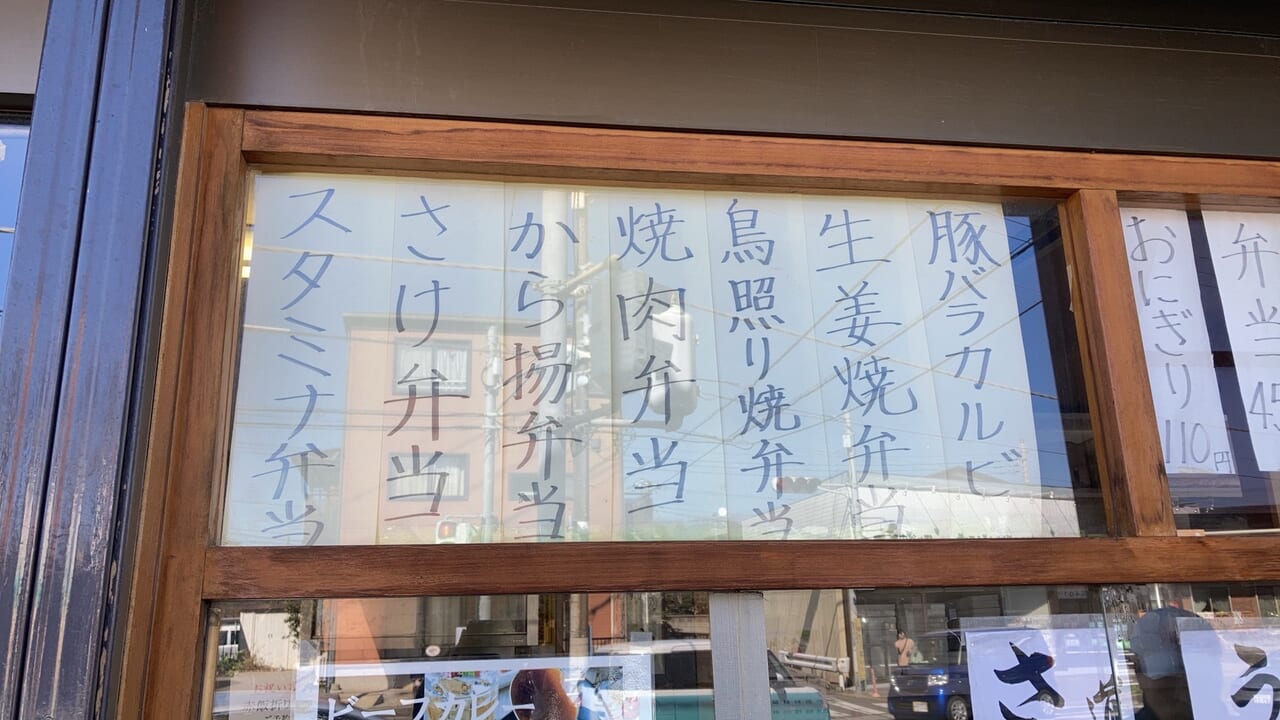 弁当 45
おにぎり 110円
豚バラカルビ
生姜焼弁当
鳥照り焼弁当
焼肉弁当
から揚弁当
さけ弁当
スタミナ弁当
ビーフカレー
さ
う